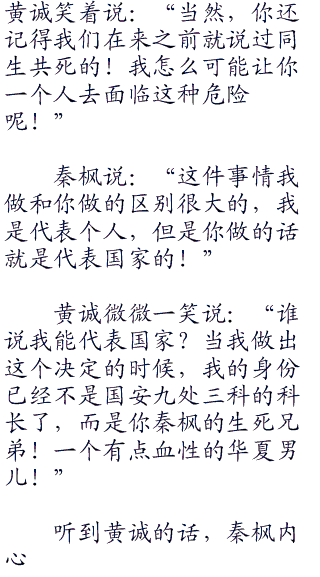 黄诚笑着说：“当然，你还
记得我们在来之前就说过同
生共死的！我怎么可能让你
一个人去面临这种危险
呢！”
秦枫说：“这件事情我
做和你做的区别很大的，我
是代表个人，但是你做的话
就是代表国家的！”
黄诚微微一笑说：“谁
说我能代表国家？当我做出
这个决定的时候，我的身份
已经不是国安九处三科的科
长了，而是你秦枫的生死兄
弟！一个有点血性的华夏男
儿！”
听到黄诚的话，秦枫内
心